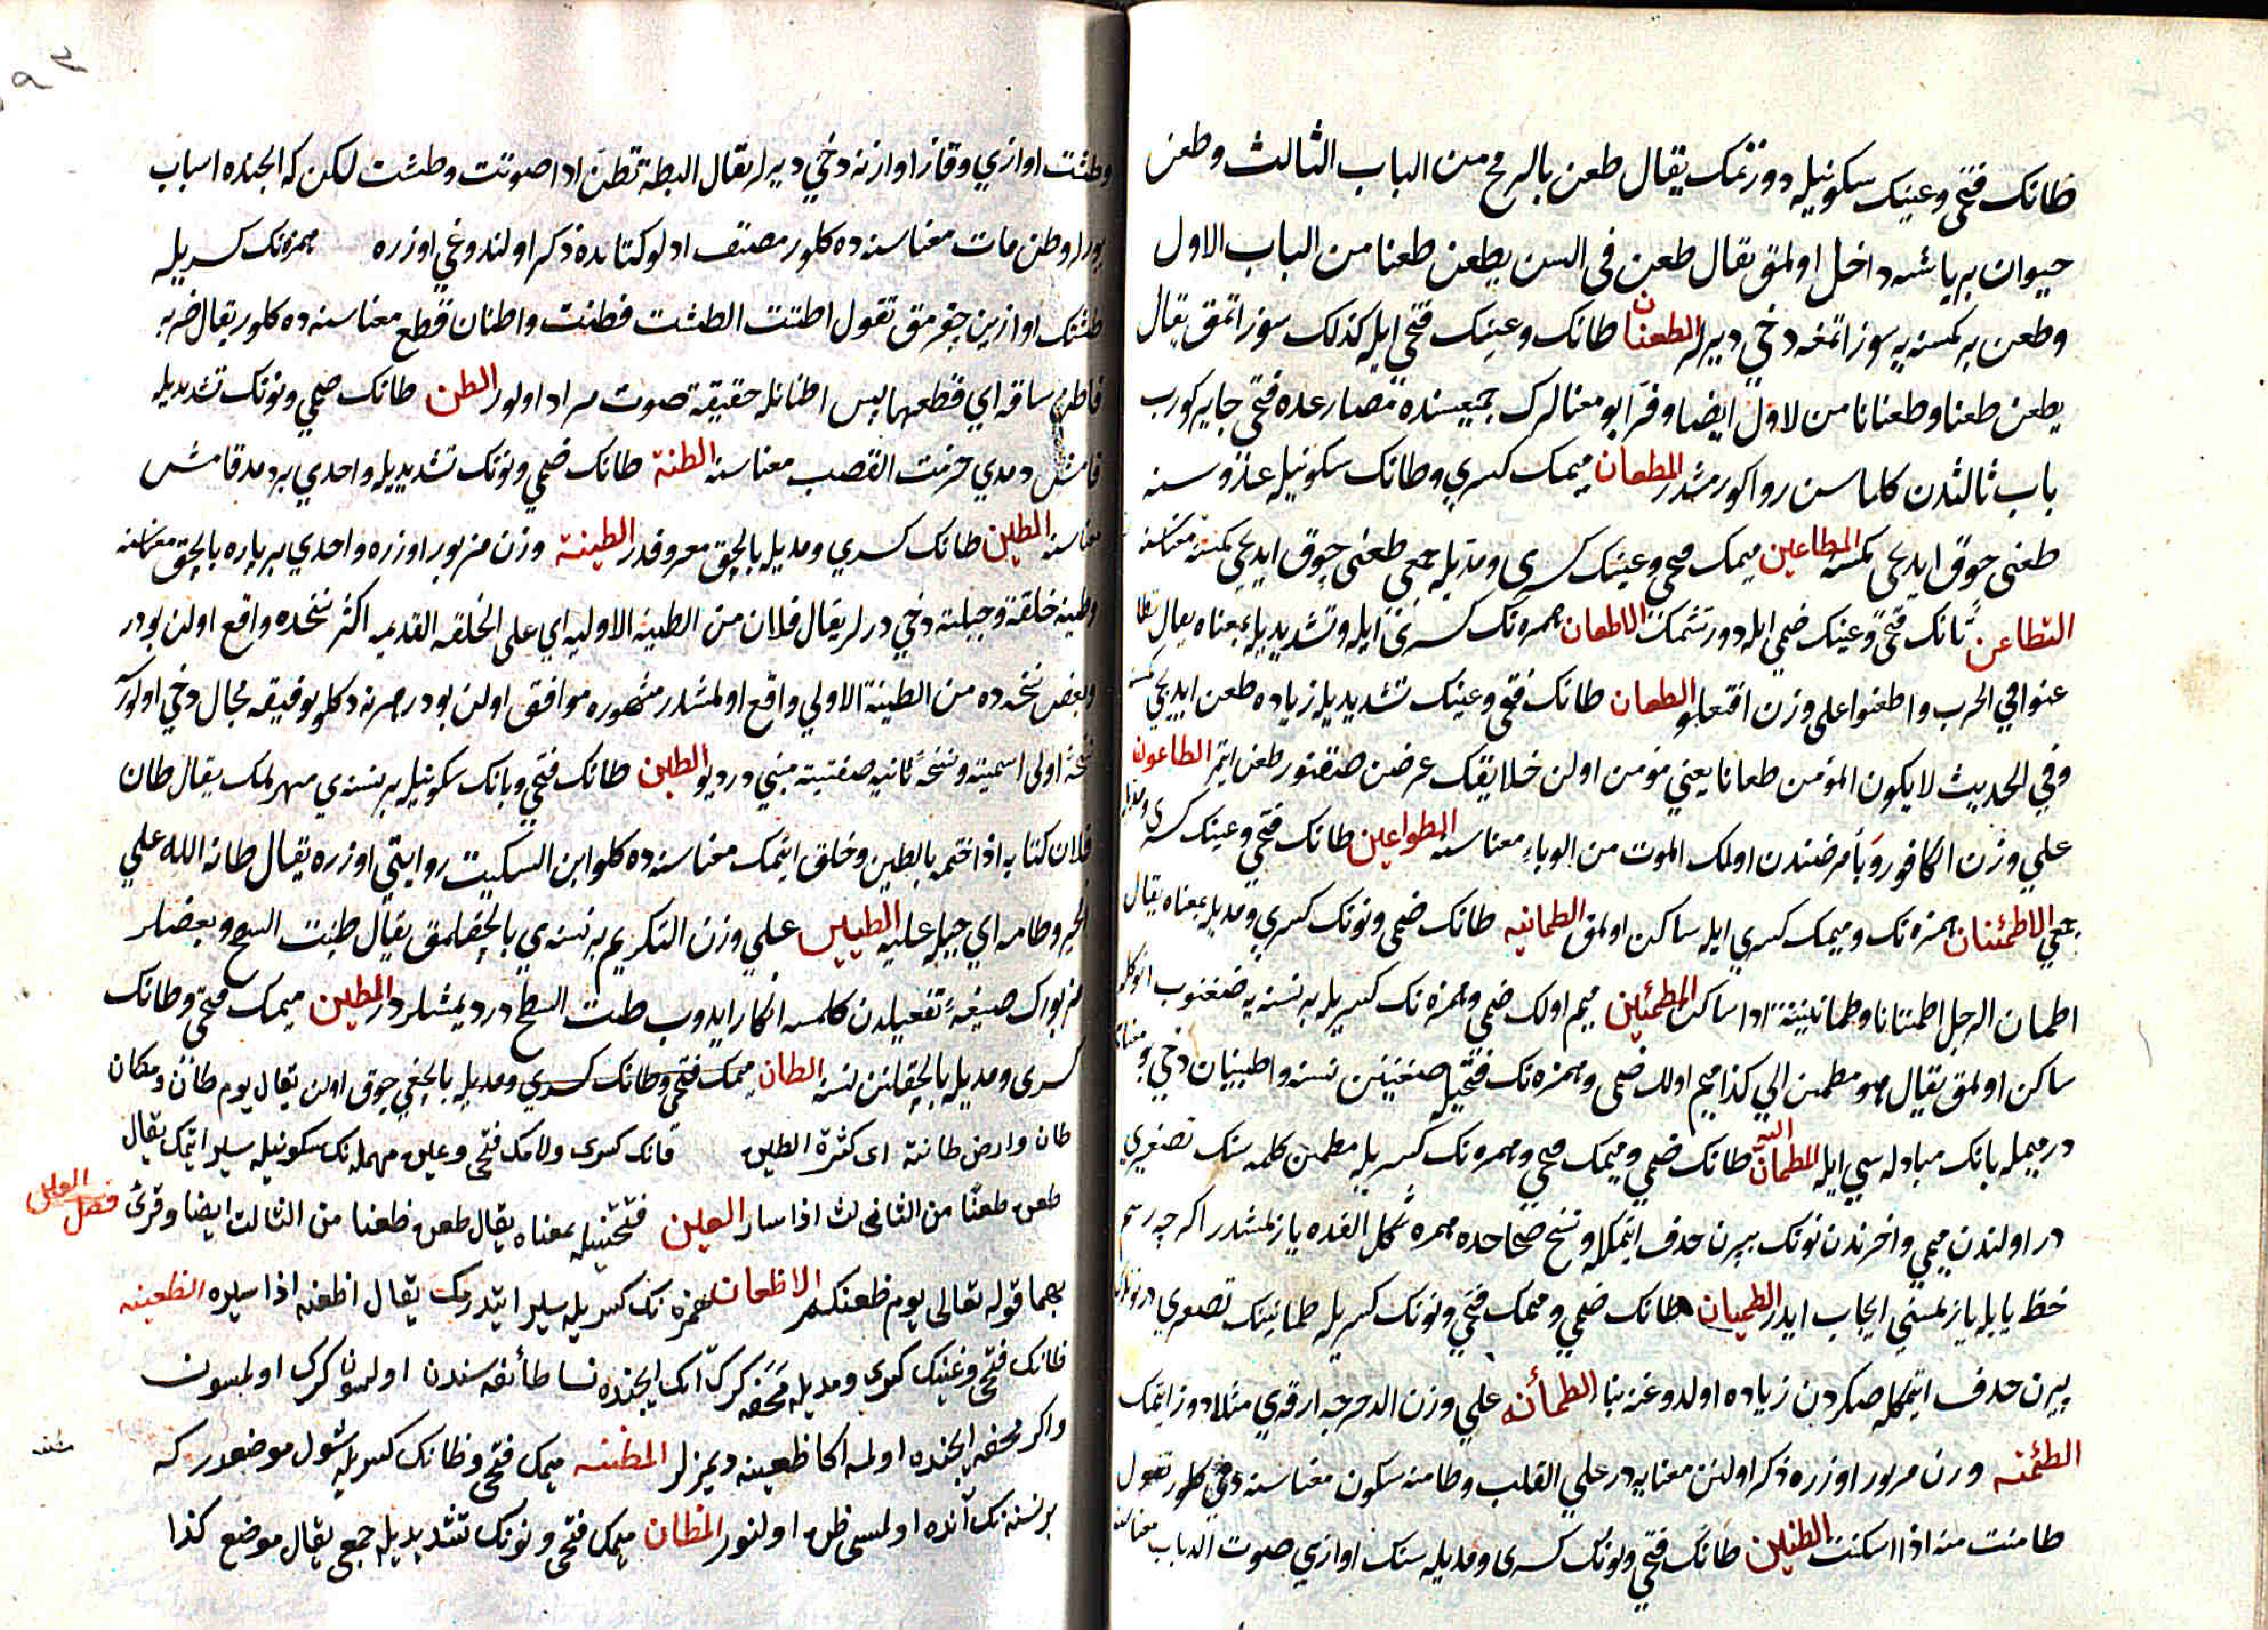 طانك فتحي وعينك سكونيله دورتمك يقال طعن بالرمح من الباب الثالث وطعن
حيوان بر ياشه داخل اولمق يقال طعن في السن يطعن طعنا من الباب الاول
وطعن بر كمسنه يه سوز اتمغه دخي ديرلر الطعنان طانك وعينك فتحي ايله كذلك سوز اتمق يقال
يطعن طعنا وطعنانا من لاول ايضا وفرّا بو معنالرك جميعسنده مضارعده فتحي جاير كورب
باب ثالثدن كلماسن روا كورمشدر المطعان ميمك كسري وطانك سكونيله عدوسنه
طعني چوق ايديجي كمسنه المطاعين ميمك فتحي وعينك كسري ومديله جمعي طعني چوق ايديجي كمسنه معناسنه
التطاعن تانك فتحي وعينك ضمي ايله دورتشمك الاطعان همزه نك كسري ايله وتشديديله بمعناه يقال تطا
عنوا في الحرب واطعنوا علي وزن افتعلوا الطعان طانك فتحي وعينك تشديديله زياده طعن ايديجي كمسنه
وفي الحديث لا يكون المؤمن طعانا يعني مؤمن اولن خلايقك عرضن طعن ايتمز الطاعون
علي وزن الكافور وبأ مرضندن اولمك الموت من الوباء معناسنه الطواعين طانك فتحي وعينك كسري ومديله
جمعي الاطمئنان همزه نك وميمك كسري ايله ساكن اولمق الطمانينه طانك ضمي ونونك كسري ومديله بمعناه يقال
اطمان الرجل اطمئنانا وطمانينة اذا ساكن المطمئين ميم اولك ضمي وهمزه نك كسريله بر نسنه يه
ساكن اولمق يقال هو مطمئن الي كذا ميم اولك ضمي وهمزه نك فتحيله نسنه واطبينان دخي بو معنايه
در ميمله بانك مبادله سي ايله المطمان اليه طانك ضمي وميمك فتحي وهمزه نك كسريله مطمئن كلمه سنك تصغيري
در اولندن ميمي واخرندن نونك بيرن حذف ايتمكله ونسخ صحاحده همزه شكل الفده يازلمشدر اكرچه رسم
خط يا ايله يازلمسني ايجاب ايدر الطميان طانك ضمي وميمك فتحي ونونك كسريله طمانينك تصغيري در نونك
بيرن حذف ايتمكله صكردن زياده اولدوغنه بنا الطمأنه علي وزن الدحرجه ارقه يي مثلا دوز ايتمك
الطئمنه وزن مزبور اوزره ذكر اولنن معنايه در علي القلب وطامنه سكون معناسنه دخي كلور تقول
طامنت منه اذا اسكنت الطنين طانك فتحي ونونك كسري ومديله سنك اوازسي صوت الذباب معناسنه
وطشت اوازي وقاز اوازنه دخي ديرلر يقال البطة تطنّ اذا صوتت وطشت لكن كه ايچنده اسباب
يورلر وطن مات معناسنده كلور مصنف ادلو كتابده ذكر اولندوغي اوزره همزه نك كسريله
طشتك اوازين چقرمق تقول اطننت الطشت فطنت واطنان قطع معناسنه ده كلور يقال ضربه
فاطن ساقه اي قطعها پس اطنانله حقيقة صوت مراد اولور الطن طانك ضمي ونونك تشديديله
قامش دمدي حزمت القصب معناسنه الطنة طانك ضمي ونونك تشديديله واحدي بر دمد قامش
معناسنه الطين طانك كسري ومديله بالچق معروفدر الطينة وزن مزبور اوزره واحدي بر پاره بالچق معناسنه
وطينه خلقة وجبلته دخي درلر يقال فلان من الطينه الاوليه اي علي الخلقه القديمه اكثر نسخده واقع اولن بودر
وبعض نسخه ده من الطينة الاولي واقع اولمشدر مشهوره موافق اولن بودر هر نه دكلو توفيقه مجال دخي اولور
نسخهٔ اولي اسميته ونسخهٔ ثانيه صفتيته مبني در ديو الطين طانك فتحي ويانك سكونيله بر نسنه يي مهرلمك يقال طان
فلان كتابه اذا ختمه بالطين وخلق ايتمك معناسنه ده كلور ابن السكيت روايتي اوزره يقال طانه الله علي
الخير وطامه اي جبله عليه التطيين علي وزن التكريم بر نسنه يي بالچقلمق يقال طينت السطح وبعضلر
مزبورك صيغهٔ تفعيلدن كلمسه انكار ايدوب طنت السطح در ديمشلردر المطين ميمك فتحي وطانك
كسري ومديله بالچقلنن نسنه الطان ميمك فتحي وطانك كسري ومديله بالچغي چوق اولن يقال يوم طانٌ ومكان
طان وارض طانة اي كثرة الطين قانك كسري ولامك فتحي وعين مهمله نك سكونيله سير ايتمك يقال
فصل
طعن طعنا من الثاني لث اذا سار العين فتحتيله بمعناه يقال طعن وظعنا من الثالث ايضا وقرئ
بهما قوله تعالي يوم ظعنكم الاظعان همزه نك كسريله سير ايتدرمك يقال اظعنه اذا سيره الظعينه
ظانك فتحي وعينك كسري ومديله مَحَفّه كرك انك ايچنده نسا طائفه سندن اولسون كرك اولمسون
واكر محفه ايچنده اولمسه اكا ظعينه ديمزلر المظنه ميمك فتحي وظانك كسريله شول موضعدر كه
بر نسنه نك آنده اولمسي ظن اولنور المظان ميمك فتحي ونونك تشديديله جمعي يقال موضع كذا